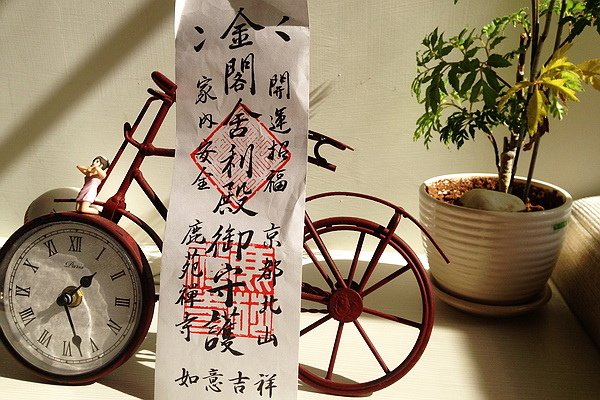 開運招福
金閣舍利殿御守護
家内安全
京都北山
鹿苑禅寺
如意吉祥
Paris
XII
I
II
III
IIII
V
VI
VII
VIII
IX
X
XI